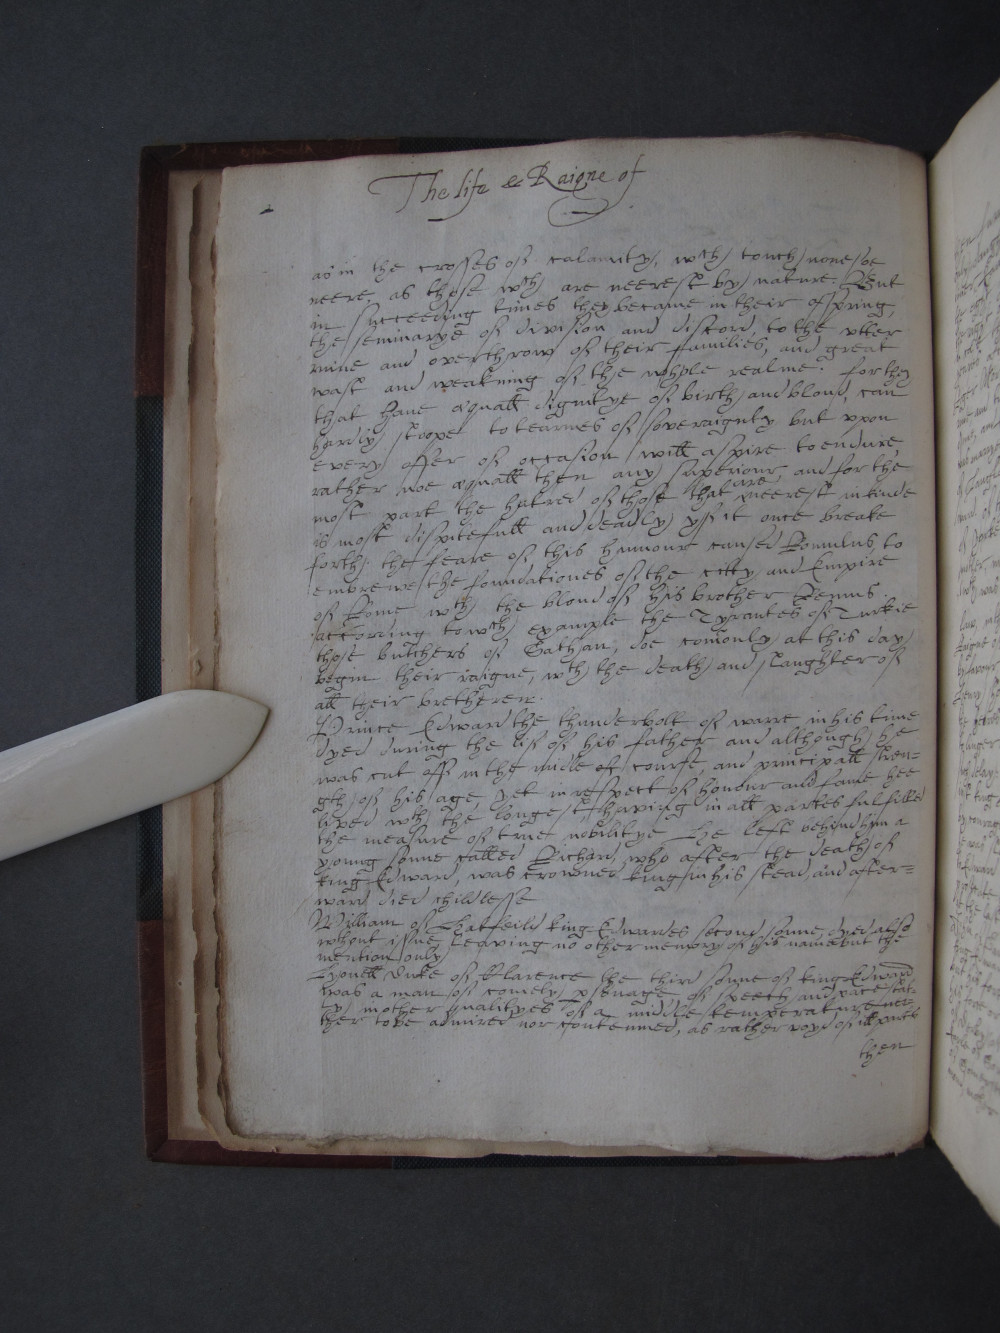 The life & Raigne of
2
as in the crosses of calamity, wch touch none so
neere, as those wch are neerest by nature. But
in succeeding times they became in their ofspring,
the seminarye of division and discord, to the vtter
ruine and overthrow of their families, and great
wast and weakning of the whole realme. for they
that haue æquall dignitye of birth and bloud, can
hardly stoope to tearmes of soveraignty but vpon
every offer of occasion will aspire to endure
rather noe æquall then any superiour and for the
most part the hatred of those that are neerest in kinde
is most dispitefull and deadly yf it once breake
forth. the feare of this humour caused Romulus to
embrewe the foundationes of the citty and Empire
of Rome wth the bloud of his brother Remus.
according to wch example the Tyrantes of Turkie
those butchers of Sathan, doe comonly at this day
begin their raigne, wth the death and slaughter of
all their bretheren.
Prince Edward the thunderbolt of warre in his time
dyed during the life of his father and although he
was cut off in the midle of course and principall stren=
gth of his age yet in respect of honour and fame hee
lived wth the longest, having in all partes fulfilled
the measure of true nobilitye He left behind him a
young sonne called Richard, who after the death of
king Edward, was crowned king in his stead, and after=
ward died childlesse
William of Hatfeild king Edwardes second sonne, dyed also
without issue leaving no other memory of his name but the
mention only
Lyonell Duke of Clarence the third sonne of king Edward
was a man of comely psonage, of speech and pace stat-
ly, in other qualityes of a middle temperature nei
ther to be admired nor contemned, as rather voyd of ill ptes
then